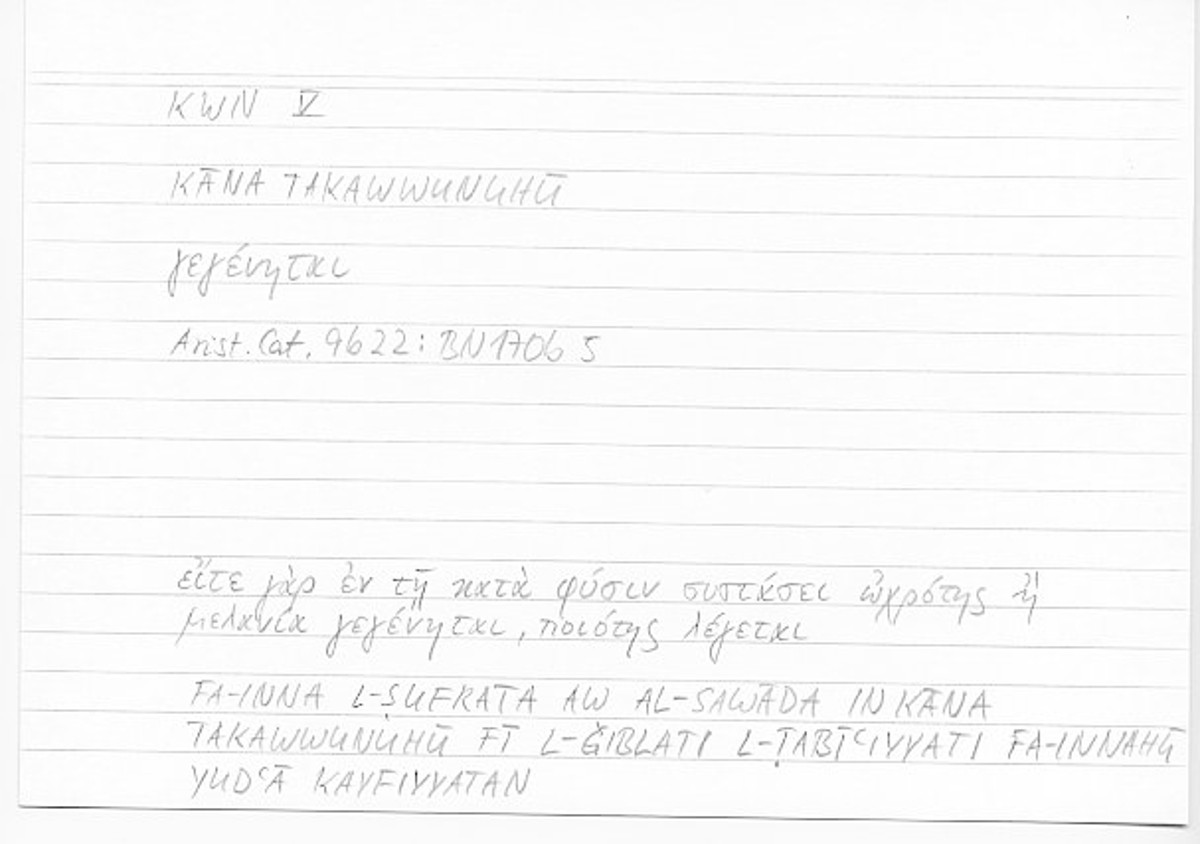 KWN V
KĀNA TAKAWWUNUHŪ
γεγένηται
Arist. Cat. 9b22: BN 170b 5
εἴτε γὰρ ἐν τῇ κατὰ φύσιν συστάσει ὠχρότης ἢ
μελανία γεγένηται, ποιότης λέγεται
FA-INNA L-ṢUFRATA AW AL-SAWĀDA IN KĀNA
TAKAWWUNUHŪ FĪ L-ǦIBLATI L-ṬABĪʿIYYATI FA-INNAHŪ
YUDʿĀ KAYFIYYATAN